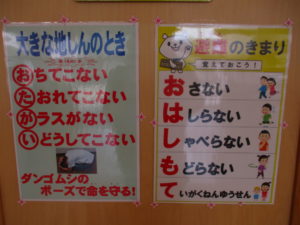 大きな地しんのとき
おちてこない
たおれてこない
ガラスがない
いどうしてこない
ダンゴムシの
ポーズで命を守る!
避難のきまり
覚えておこう!
おさない
はしらない
しゃべらない
もどらない
ていがくねんゆうせん